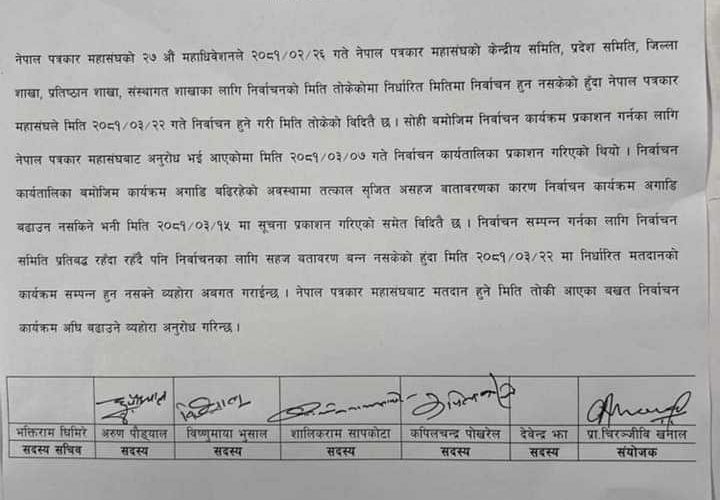 नेपाल पत्रकार महासंघको २७ औं महाधिवेशनले २०८१/०२/२६ गते नेपाल पत्रकार महासंघको केन्द्रीय समिति, प्रदेश समिति, जिल्ला
शाखा, प्रतिष्ठान शाखा, संस्थागत शाखाका लागि निर्वाचनको मिति तोकेकोमा निर्धारित मितिमा निर्वाचन हुन नसकेको हुँदा नेपाल पत्रकार
महासंघले मिति २०८१/०३/२२ गते निर्वाचन हुने गरी मिति तोकेको विदितै छ । सोही बमोजिम निर्वाचन कार्यक्रम प्रकाशन गर्नका लागि
नेपाल पत्रकार महासंघबाट अनुरोध भई आएकोमा मिति २०८१/०३/०७ गते निर्वाचन कार्यतालिका प्रकाशन गरिएको थियो । निर्वाचन
कार्यतालिका बमोजिम कार्यक्रम अगाडि बढिरहेको अवस्थामा तत्काल सृजित असहज बाताबरणका कारण निर्वाचन कार्यक्रम अगाडि
बढाउन नसकिने भनी मिति २०८१/०३/१५ मा सूचना प्रकाशन गरिएको समेत विदितै छ । निर्वाचन सम्पन्न गर्नका लागि निर्वाचन
समिति प्रतिबद्ध रहँदा रहँदै पनि निर्वाचनका लागि सहज बतावरण बन्न नसकेको हुंदा मिति २०८१/०३/२२ मा निर्धारित मतदानको
कार्यक्रम सम्पन्न हुन नसक्ने व्यहोरा अवगत गराईन्छ । नेपाल पत्रकार महासंघबाट मतदान हुने मिति तोकी आएका बखत निर्वाचन
कार्यक्रम अघि बढाउने व्यहोरा अनुरोध गरिन्छ ।
भक्तिराम घिमिरे अरुण पौड्याल विष्णुमाया भुसाल शालिकराम सापकोटा कपिलचन्द्र पोखरेल देवेन्द्र झा प्रा.चिरञ्जीवि खनाल
सदस्य सचिव सदस्य सदस्य सदस्य सदस्य सदस्य संयोजक